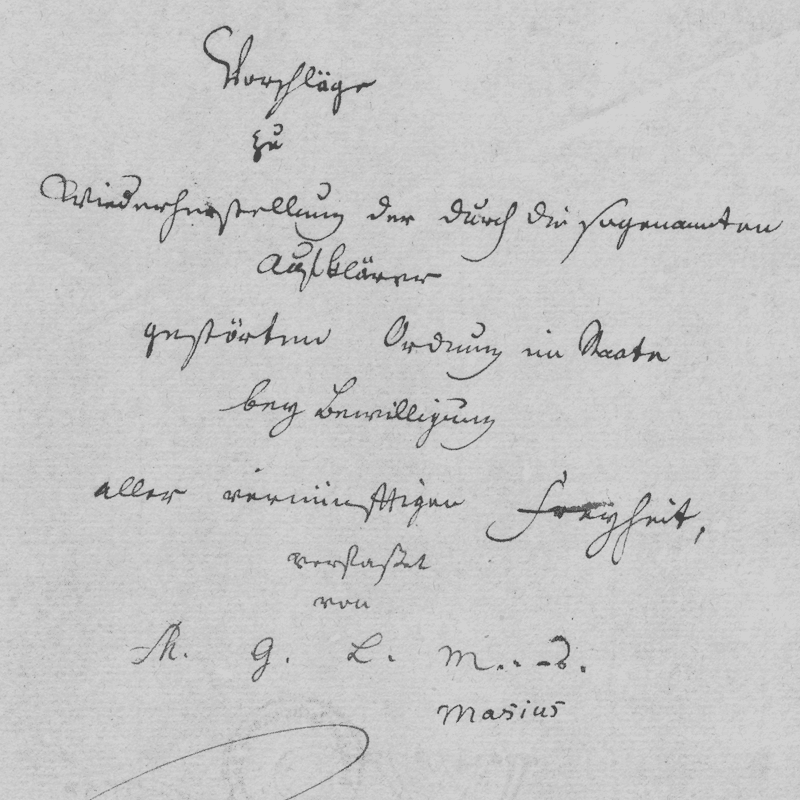 Vorschläge
zu
Wiederherstellung der durch die sogenannten
Aufklärer
gestörten Ordnung im Staate
bey Bewilligung
aller vernünfftigen Freyheit,
verfaßet
von
G. L. M..-s.
Masius